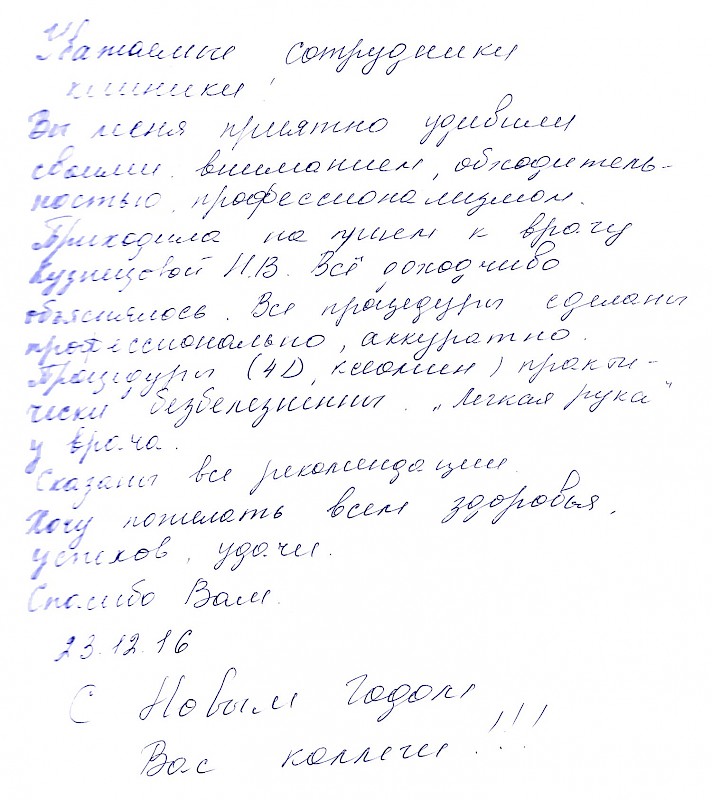 Уважаемые сотрудники
клиники!
Вы меня приятно удивили
своими вниманием, обходитель-
ностью, профессионализмом.
Приходила на прием к врачу
Кузнецовой Н.В. Всё доходчиво
объяснялось. Все процедуры сделаны
профессионально, аккуратно.
Процедуры (4D, ксеомин) практи-
чески безболезненны. „Легкая рука"
у врача.
Сказаны все рекомендации.
Хочу пожелать всем здоровья,
успехов, удачи.
Спасибо Вам.
23.12.16
С Новым годом
Вас коллеги!!!